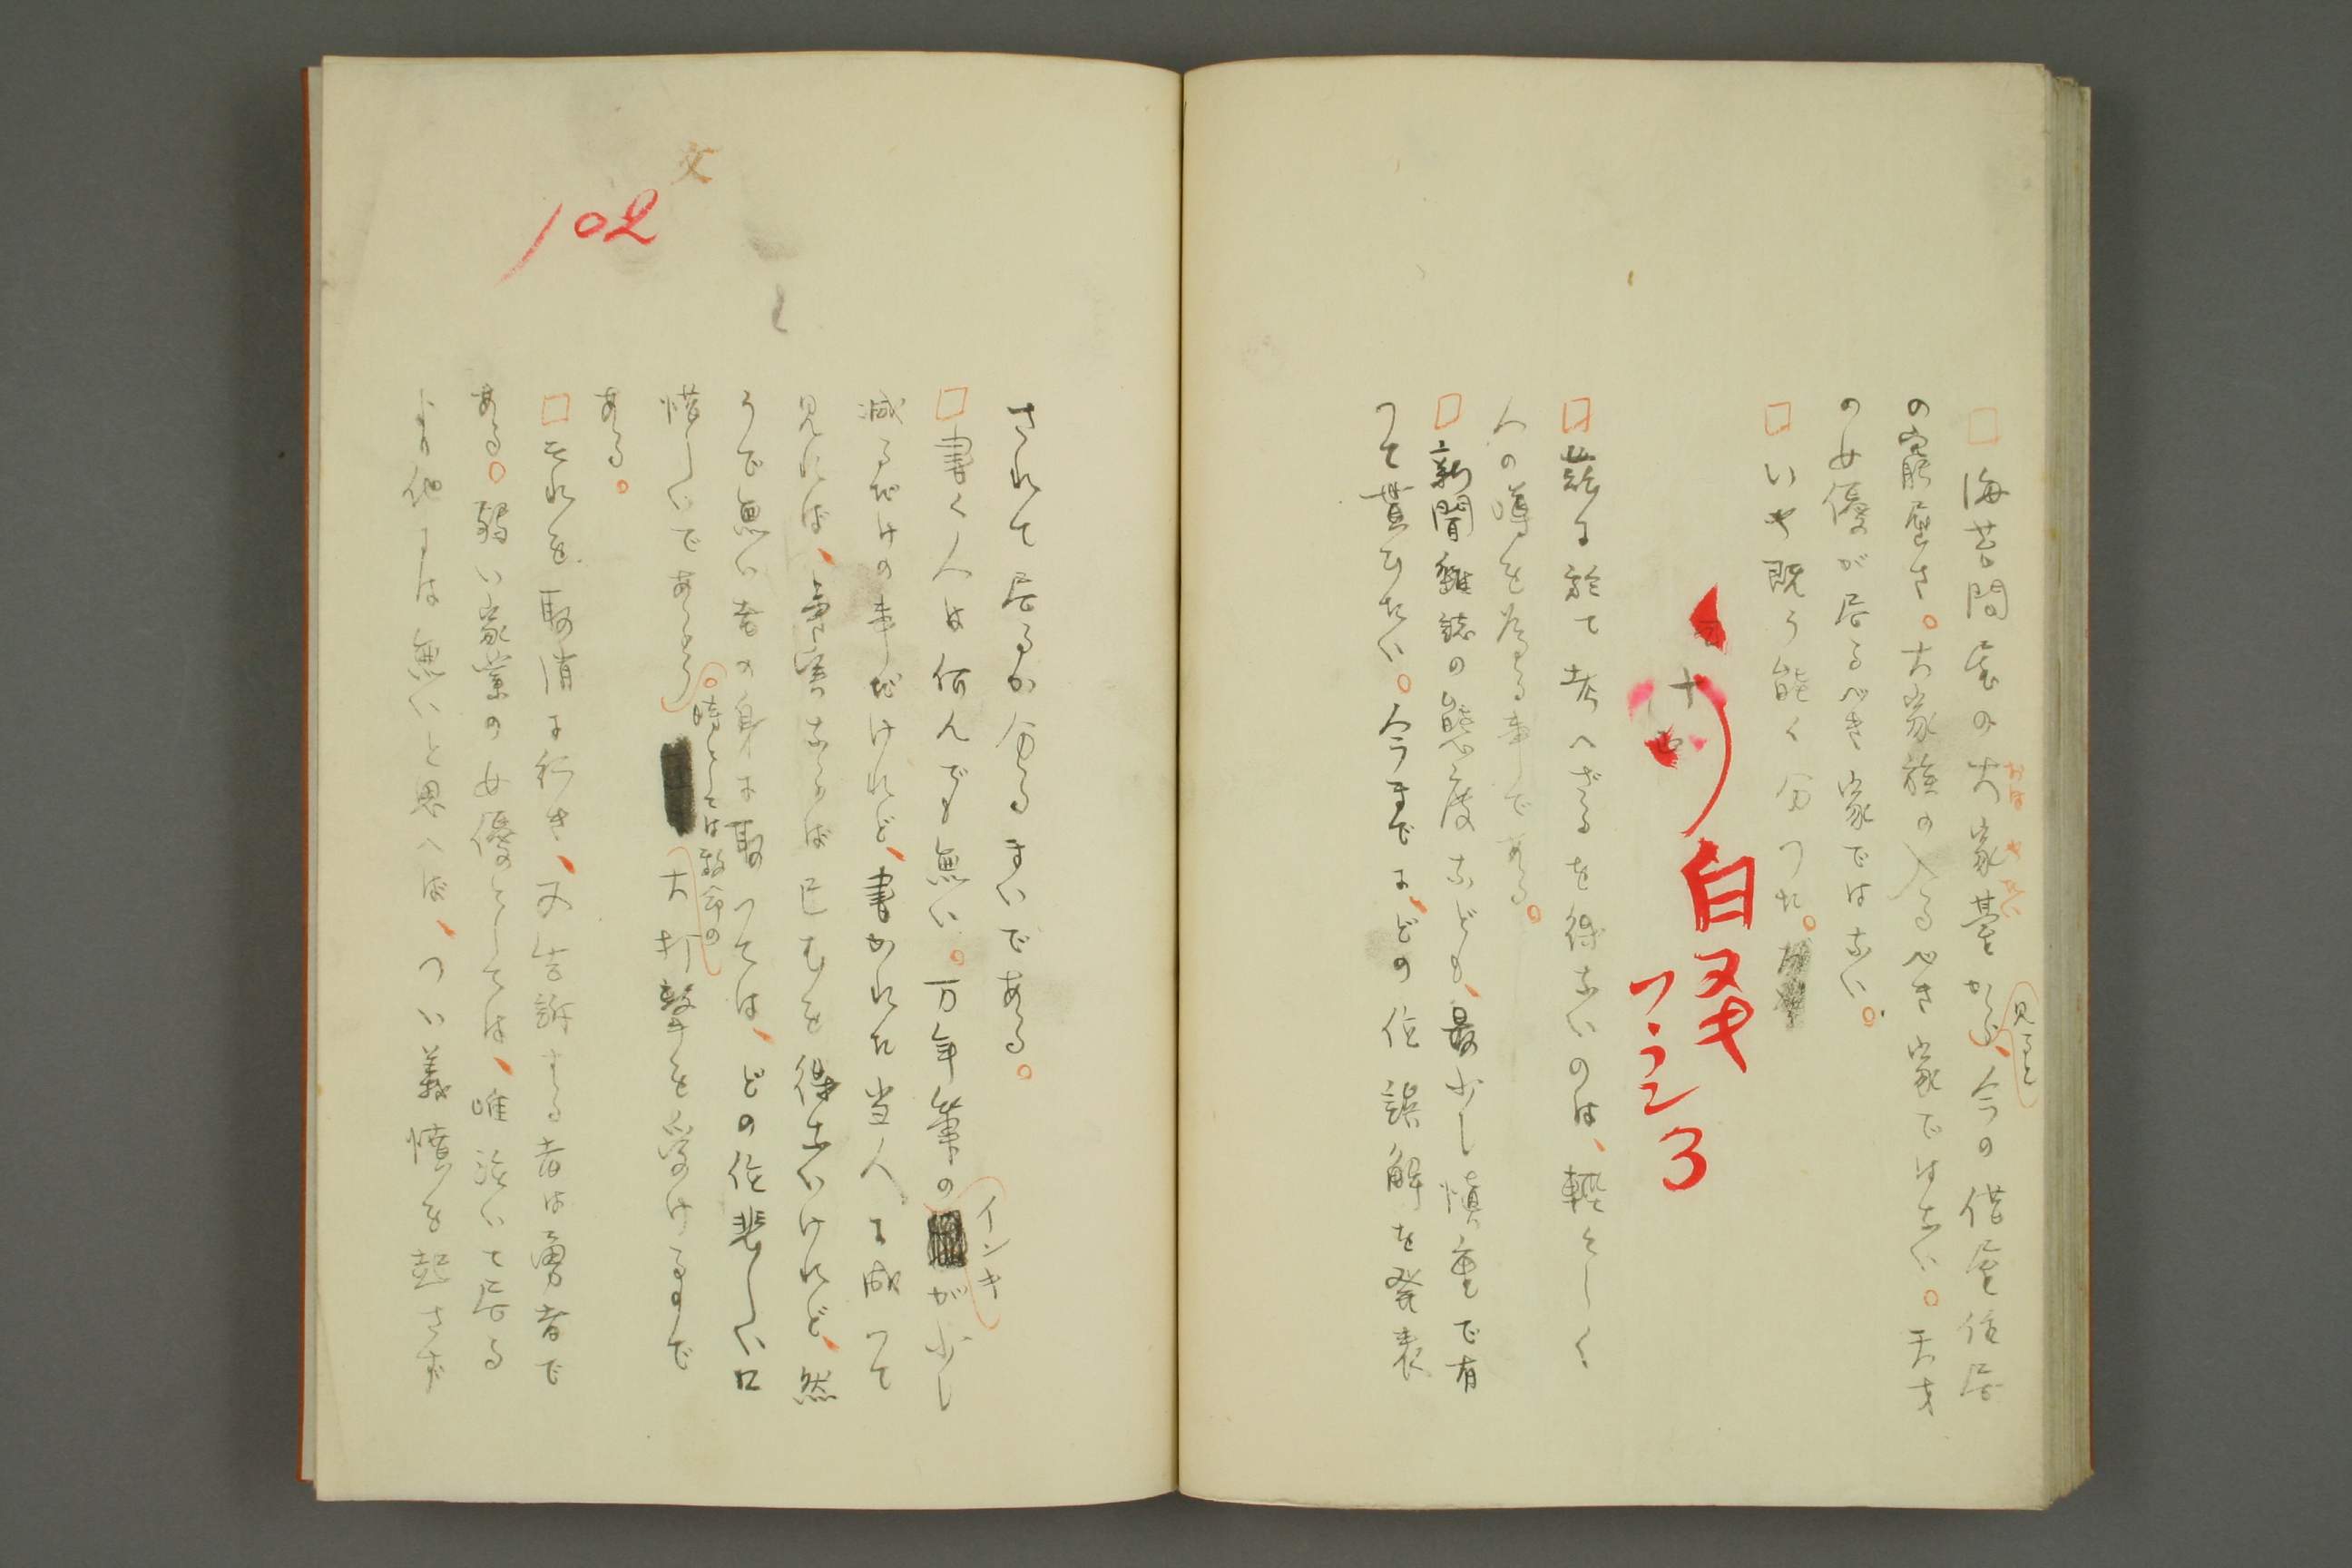 □海苔問屋の大家台から、見ると今の借屋住居
おほやだい
の窮屈さ。大家族の入るべき家では無い。天才
の女優が居るべき家では無い。
□いや既う能く分つた。
(十四)
白ヌキ
ワラシ3
□茲に於て考へざるを得ないのは、軽々しく
人の噂を為る事である。
□新聞雑誌の態度なども、最少し慎重で有
つて貰ひたい。今までに、どの位誤解を発表
文
102
されて居るか分るまいである。
□書く人は何んでも無い。万年筆のインキが少し
減るだけの事だけれど、書かれた当人に成つて
見れば、事実ならば已むを得ないけれど、然
うで無い者の身に取つては、どの位悲しい口
惜しいであらう。時としては致命の大打撃を受けるまで
ある。
□それを取消に行き、又告訴する者は勇者で
ある。弱い家業の女優としては、唯泣いて居る
より他には無いと思へば、つい義憤を起さず